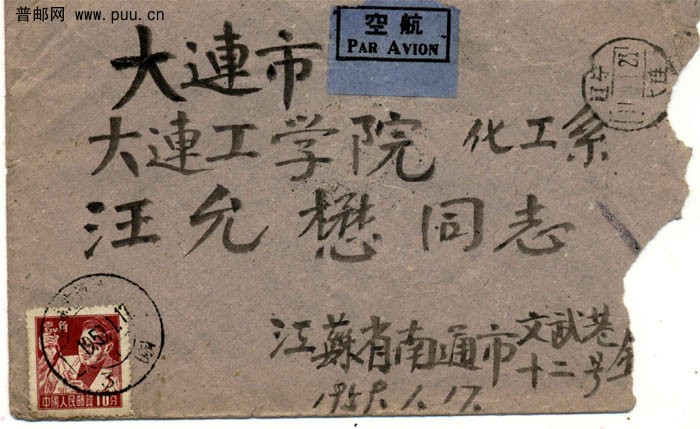 普邮网 www.puu.cn
空航
PAR AVION
大連市
大連工学院 化工系
汪允懋同志
江蘇省南通市文武巷
十二号
1959.1.17.
壹角
中國人民郵政 10分